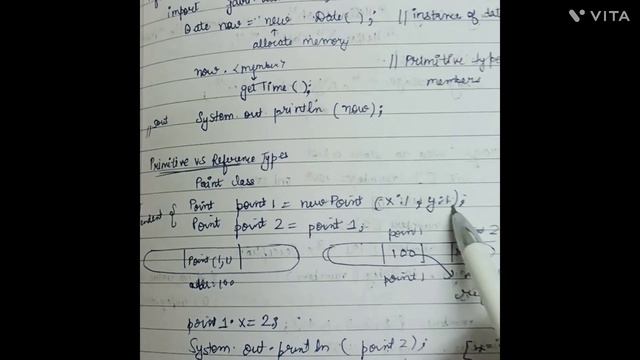 VITA
import java
Date now = new Date(); // instance of dat
allocate memory
now.<member> // Primitive type
getTime(); members
//sout System.out.println(now);
Primitive vs Reference Types
Point class
Point point1 = new Point (x:1, y:1);
Point point 2 = point 1;
point1 = 2
Point(1,1) 100
addr=100 point1
point1.x=2;
System.out.println(point2);